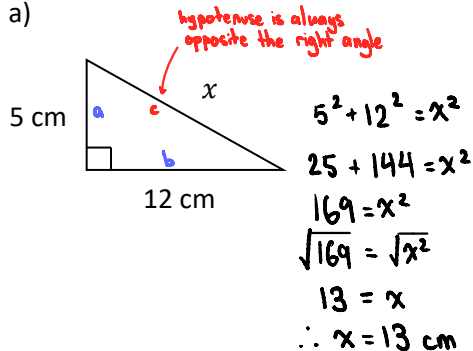 a)
hypotenuse is always
opposite the right angle
x
5 cm
a
c
b
12 cm
5² + 12² = x²
25 + 144 = x²
169 = x²
√169 = √x²
13 = x
∴ x = 13 cm